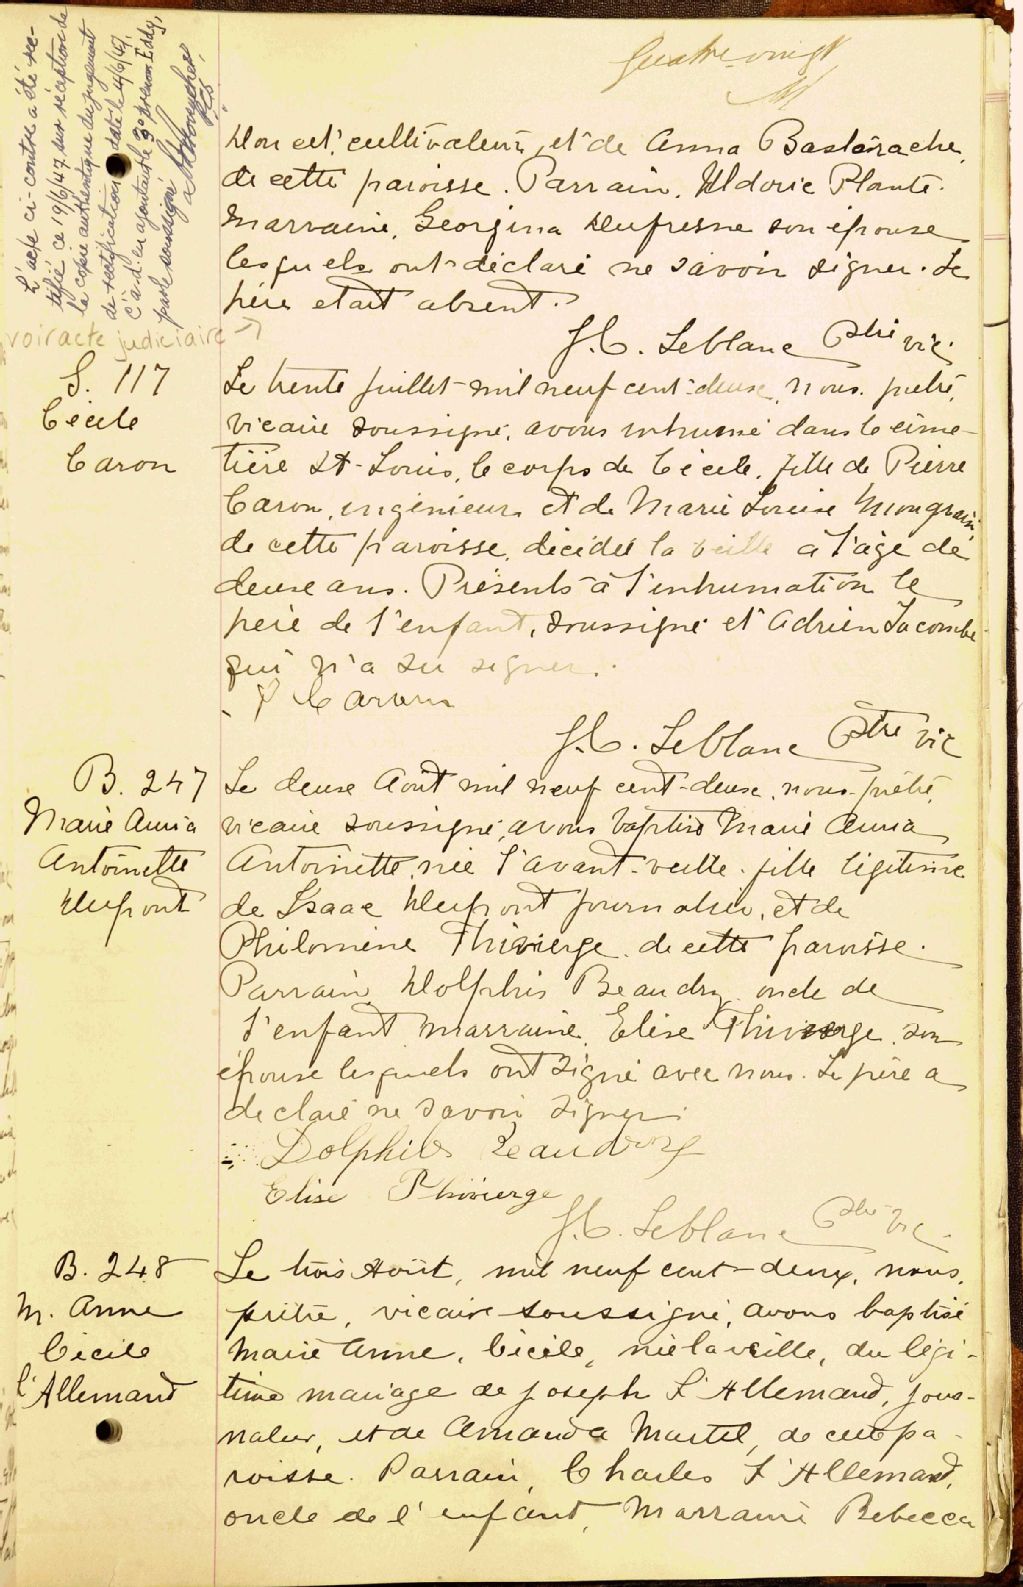 Quatre-vingt
L'acte ci-contre a été rec-
tifié ce 19/6/47 sur réception de
la copie authentique du jugement
de rectification daté le 4/6/47,
c'à-d: en ajoutant le 3e prénom Eddy,
par le soussigné
voir acte judiciaire →
Doucet, cultivateur, et de Anna Bastarache,
de cette paroisse. Parrain, Uldoric Plante.
Marraine, Georgina Dufresne son épouse
lesquels ont déclaré ne savoir signer. Le
père était absent.
J.C. Leblanc Ptre vic.
S. 117
Cécile
Caron
Le trente juillet mil neuf cent-deux, nous, prêtre,
vicaire soussigné, avons inhumé dans le cime-
tière St-Louis, le corps de Cécile, fille de Pierre
Caron, ingénieur, et de Marie Louise Mongrain,
de cette paroisse, décédée la veille à l'âge de
deux ans. Présents à l'inhumation le
père de l'enfant, soussigné et Adrien Lacombe
qui n'a su signer.
P Caron
J.C. Leblanc Ptre vic
B. 247
Marie Anna
Antoinette
Dupont
Le deux Août mil neuf cent-deux, nous, prêtre,
vicaire soussigné, avons baptisé Marie Anna
Antoinette, née l'avant-veille, fille légitime
de Isaac Dupont journalier, et de
Philomène Thivierge de cette paroisse.
Parrain Dolphis Beaudry oncle de
l'enfant marraine, Elise Thivierge, son
épouse lesquels ont signé avec nous. Le père a
déclaré ne savoir signer.
Dolphis Beaudry
Elise Thivierge
J.C. Leblanc Ptre vic.
B. 248
M. Anne
Cécile
L'Allemand
Le trois Août, mil neuf cent-deux, nous,
prêtre, vicaire soussigné, avons baptisé
Marie Anne, Cécile, née la veille, du légi-
time mariage de Joseph L'Allemand, jour-
nalier, et de Amanda Martel, de cette pa-
roisse. Parrain, Charles L'Allemand,
oncle de l'enfant, Marraine Rebecca